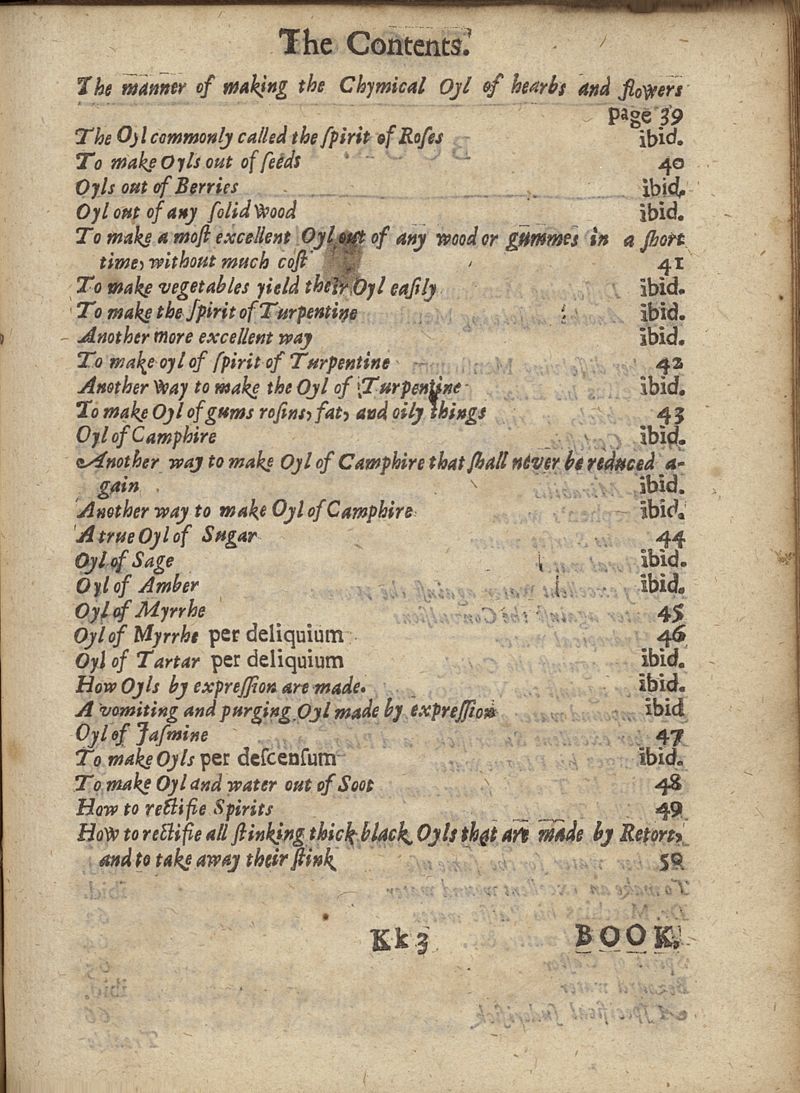 The Contents.
The manner of making the Chymical Oyl of hearbs and flowers
page 39
The Oyl commonly called the ſpirit of Roſes ibid.
To make Oyls out of ſeeds 40
Oyls out of Berries ibid.
Oyl out of any ſolid Wood ibid.
To make a moſt excellent Oyl out of any wood or gummes in a ſhort
time, without much coſt 41
To make vegetables yield their Oyl eaſily ibid.
To make the ſpirit of Turpentine ibid.
Another more excellent way ibid.
To make oyl of ſpirit of Turpentine 42
Another Way to make the Oyl of Turpentine ibid.
To make Oyl of gums roſins, fat, and oily things 43
Oyl of Camphire ibid.
Another way to make Oyl of Camphire that ſhall never be reduced a-
gain ibid.
Another way to make Oyl of Camphire ibid.
A true Oyl of Sugar 44
Oyl of Sage ibid.
Oyl of Amber ibid.
Oyl of Myrrhe 45
Oyl of Myrrhe per deliquium 46
Oyl of Tartar per deliquium ibid.
How Oyls by expreſſion are made. ibid.
A vomiting and purging Oyl made by expreſſion ibid
Oyl of Jaſmine 47
To make Oyls per deſcenſum ibid.
To make Oyl and water out of Soot 48
How to rectifie Spirits 49
How to rectifie all ſtinking thick black Oyls that are made by Retort,
and to take away their ſtink 50
Kk3 BOOK.